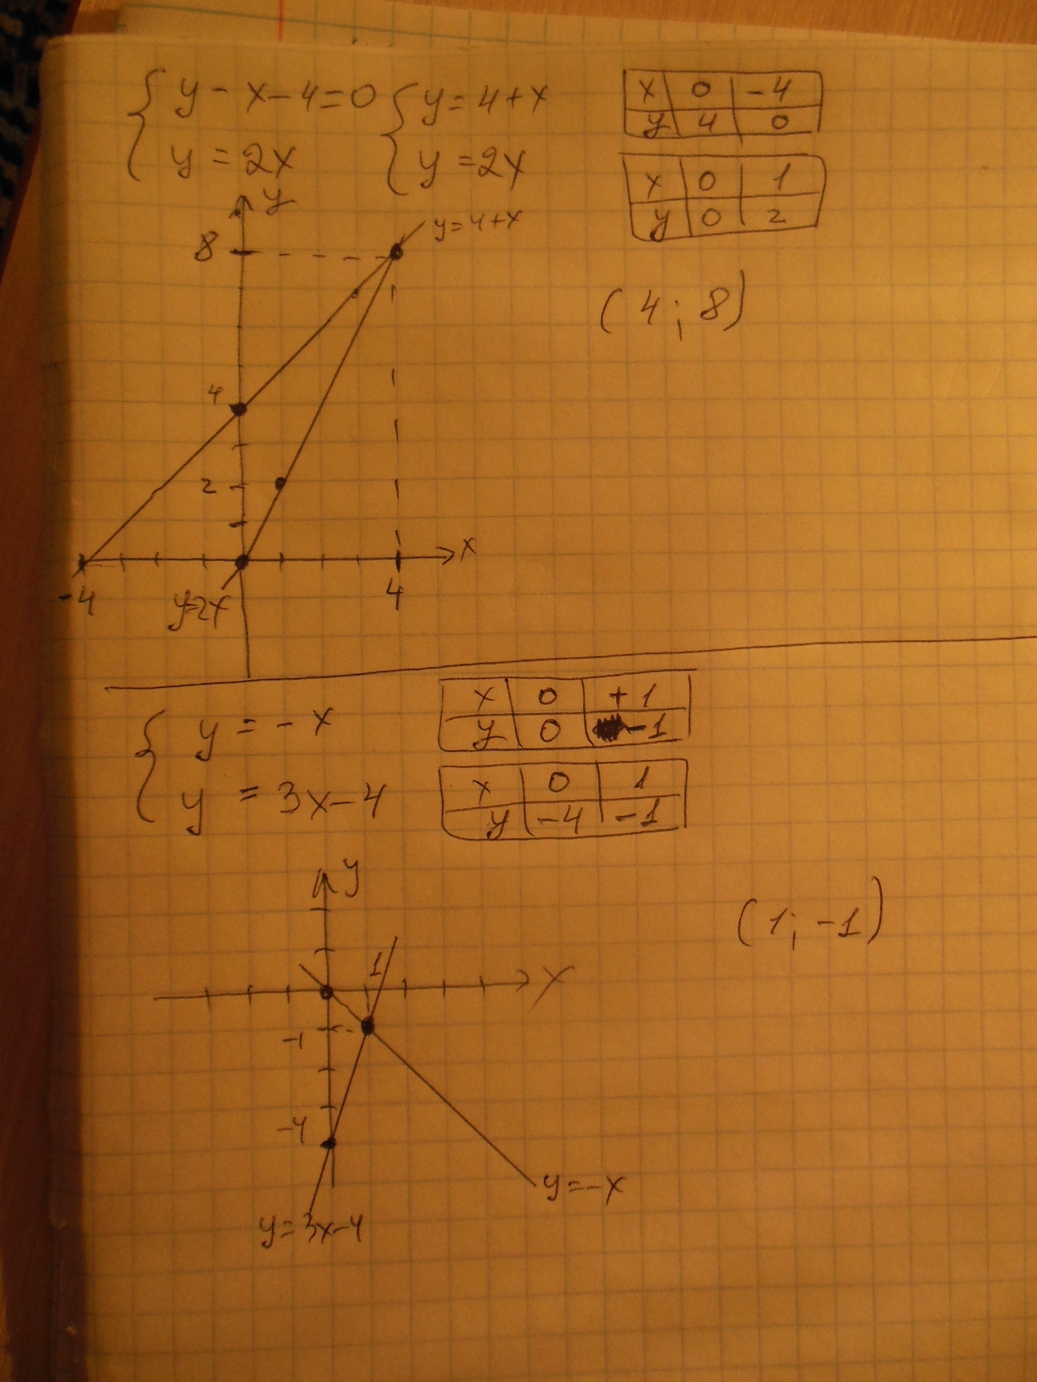 { y - x - 4 = 0 { y = 4 + x
y = 2x y = 2x
x 0 -4
y 4 0
x 0 1
y 0 2
(4; 8)
y
8
y = 4 + x
4
2
x
-4
4
y=2x
{ y = - x
y = 3x - 4
x 0 +1
y 0 -1
x 0 1
y -4 -1
(1; -1)
y
1
x
-1
-4
y = -x
y = 3x - 4